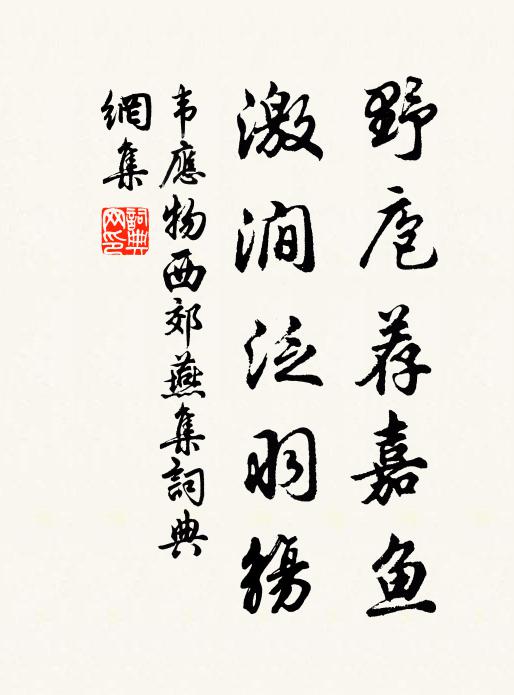 野庖荐嘉鱼
激涧泛羽觞
韦應物西郊燕集詞典
網集
詞典网印